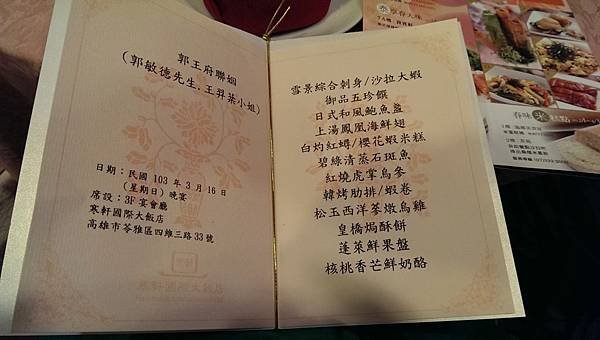 郭王府聯姻
(郭敏德先生.王羿棻小姐)
日期：民國 103 年 3 月 16 日
(星期日)晚宴
席設：3F 宴會廳
寒軒國際大飯店
高雄市苓雅區四維三路 33 號
雪景綜合刺身/沙拉大蝦
御品五珍饌
日式和風鮑魚盞
上湯鳳凰海鮮翅
白灼紅蟳/櫻花蝦米糕
碧綠清蒸石斑魚
紅燒虎掌烏參
韓烤肋排/蝦卷
松玉西洋蔘燉烏雞
皇橋焗酥餅
蓬萊鮮果盤
核桃香芒鮮奶酪